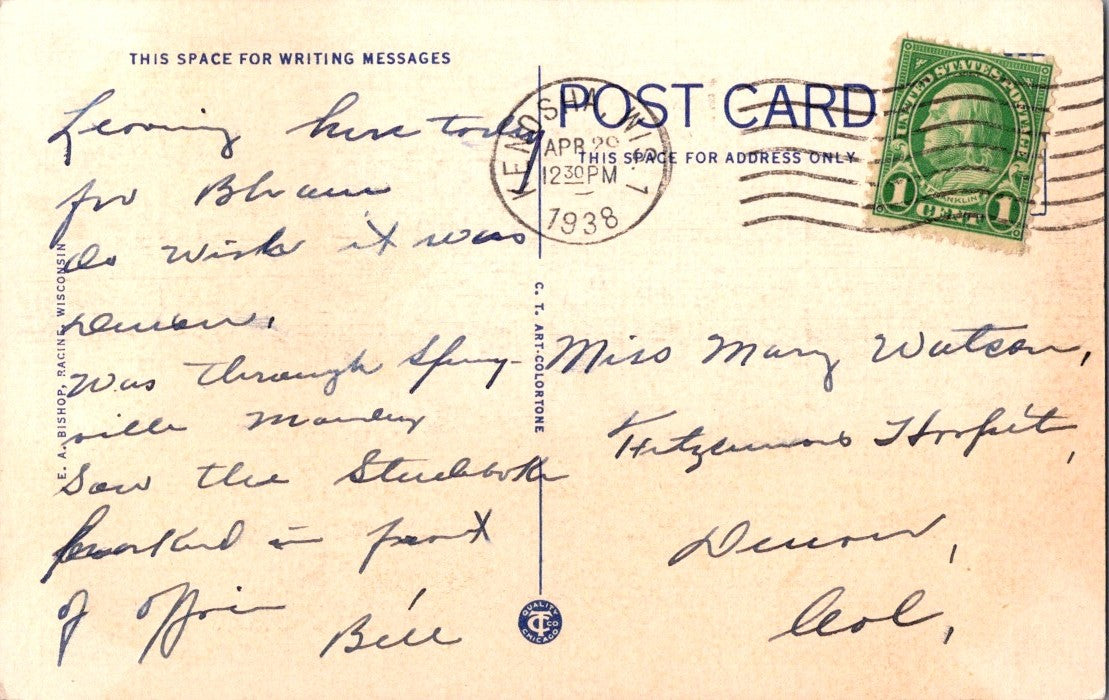 THIS SPACE FOR WRITING MESSAGES
POST CARD
THIS SPACE FOR ADDRESS ONLY
KENOSHA, WIS. 1
APR 29
12 30 PM
1938
UNITED STATES POSTAGE
FRANKLIN
1 CENT 1
Leaving here today
for
do wish it was
Denver.
Was through Spring-
ville Monday
Saw the Studebaker
parked in front
of office
Bill
Miss Mary Watson,
Fitzsimons Hospit,
Denver,
Col,
E. A. BISHOP, RACINE, WISCONSIN
C. T. ART-COLORTONE
QUALITY
CT CO
CHICAGO